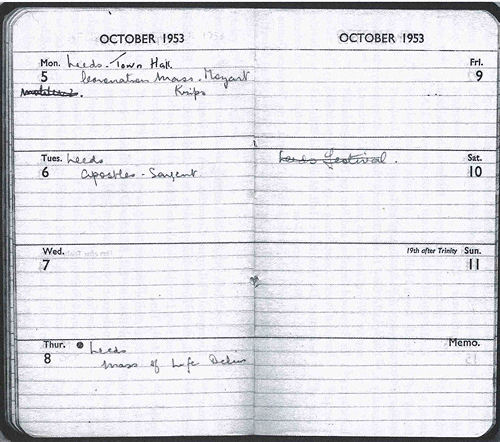 OCTOBER 1953
Mon. Leeds. Town Hall
5 Coronation Mass. Mozart
Krips
Tues. Leeds
6 Apostles - Sargent
Wed.
7
Thur. Leeds
8 Mass of Life Delius
OCTOBER 1953
Fri.
9
Leeds Festival. Sat.
10
19th after Trinity Sun.
11
Memo.